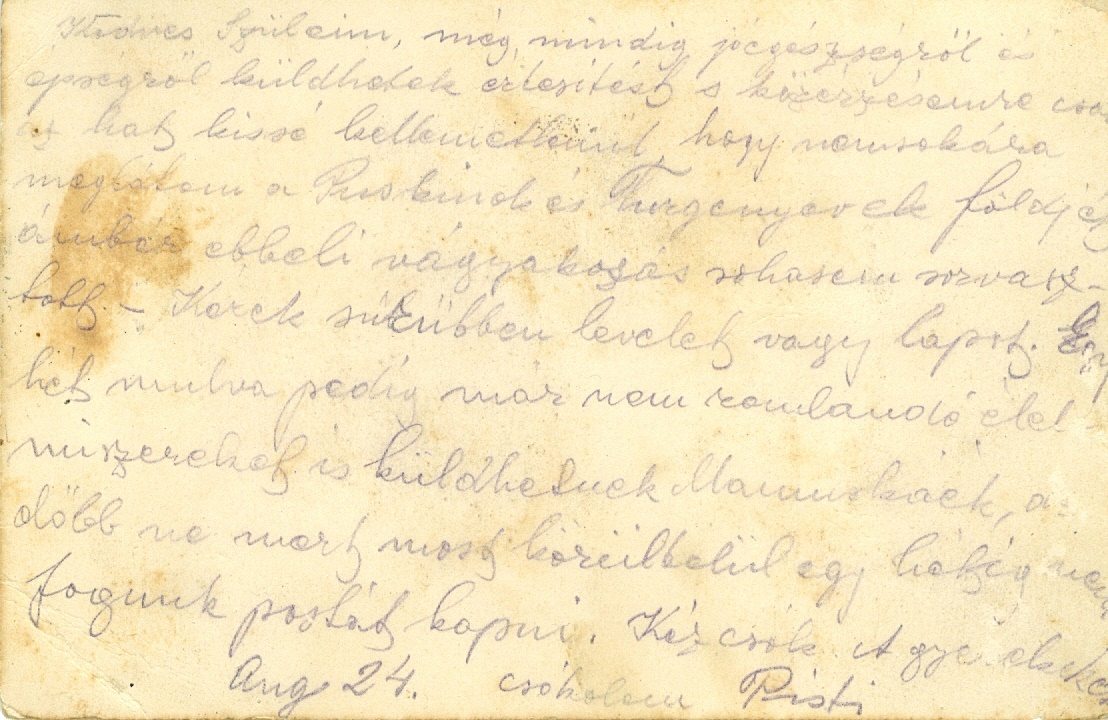 Kedves Szüleim, még mindig jóegészségről és
épségről küldhetek értesitést s közérzésemre csak
az hat kissé kellemetlenül, hogy nemsokára
meglátom a Puskinok és Turgenyevek földjét
ámbár ebbeli vágyakozás sohasem sorvasz-
tott. – Kérek sűrűbben levelet vagy lapot. Egy
hét mulva pedig már nem romlandó élel-
miszereket is küldhetnek Mamuskáék, az-
előbb ne mert most körülbelül egy hétig nem
fogunk postát kapni. Kézcsók A gyerekeket
Aug 24. csókolom Pisti